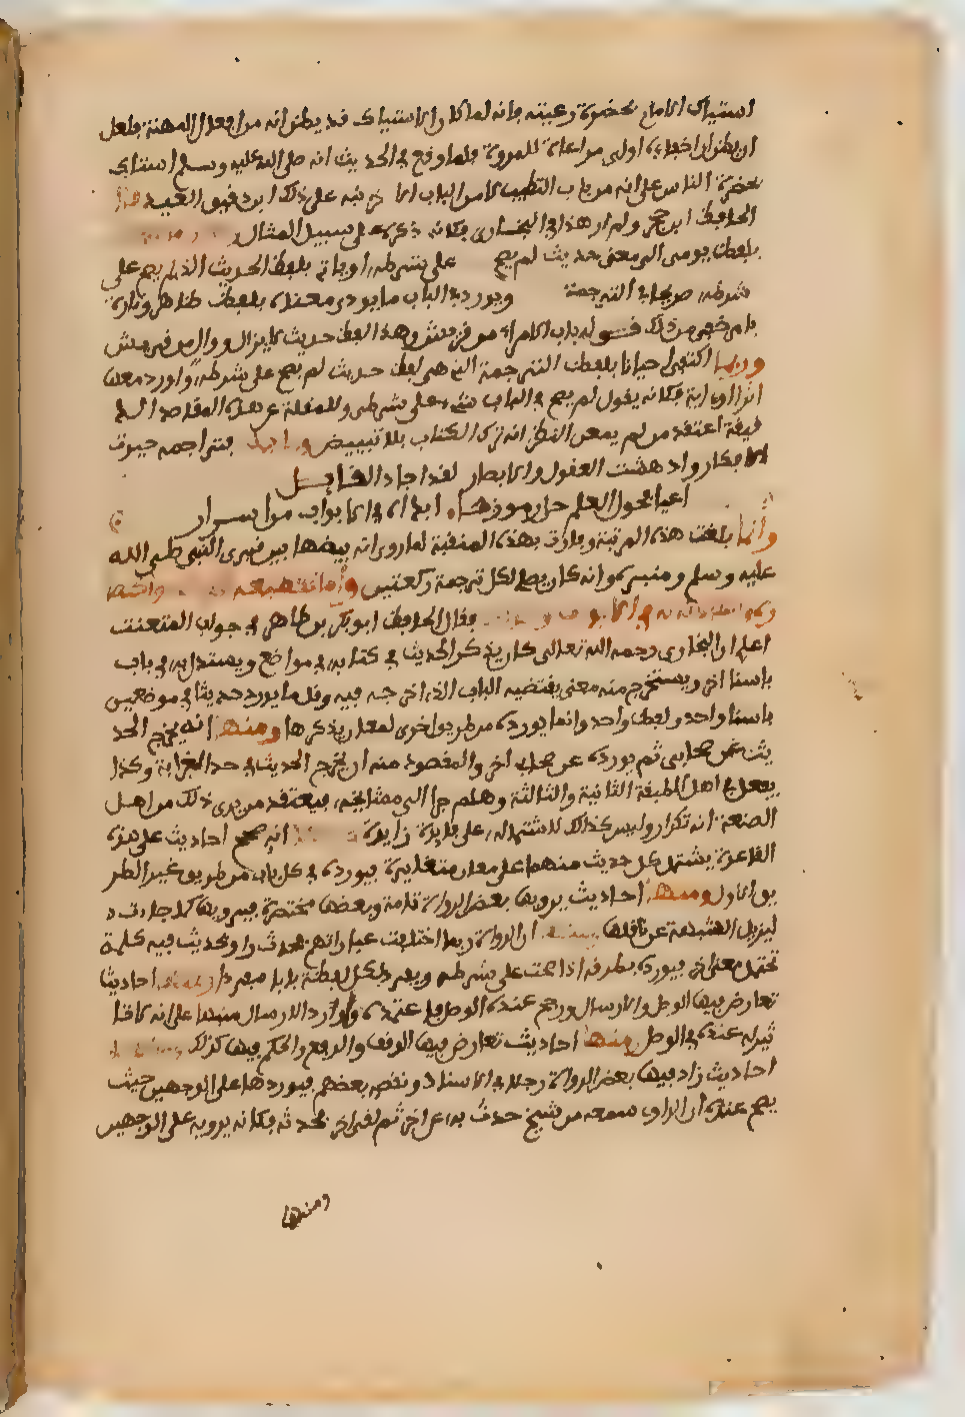 استياك الامام بحضرة رعيته فانه لما كان الاستياك قد يظن انه من افعال المهنة فلعل
ان يظن ان اخفاءه اولى مراعاة للمروة فلما وقع في الحديث انه صلى الله عليه وسلم استاك
بحضرة الناس على انه من باب التطيب لا من الباب الاخر نبه على ذلك ابن دقيق العيد قال
الحافظ ابن حجر ولم ار هذا في البخاري فكانه ذكره على سبيل المثال
بلفظ يومى الى معنى حديث لم يصح على شرطه او ياتي بلفظ الحديث الذي لم يصح على
شرطه صريحا في الترجمة ويورد في الباب ما يودي معناه بلفظ ظاهر وتارة
بامر خفي من ذلك قوله باب الامراء من قريش وهذا لفظ حديث لا يزال وال من قريش
وربما اكتفى احيانا بلفظ الترجمة التي هي لفظ حديث لم يصح على شرطه واورد معها
اثرا او اية فكانه يقول لم يصح في الباب شيء على شرطي وللغفلة عن هذه المقاصد الد
قيقة اعتقد من لم يمعن النظر انه ترك الكتاب بلا تبييض وبالجملة فتراجمه حيرت
الافكار وادهشت العقول والابصار لقد اجاد القايل
اعيا فحول العلم حل رموز ما ابداه في الابواب من اسرار
وانما بلغت هذه المرتبة وفازت بهذه المنقبة لما روي انه بيضها بين قبري النبي صلى الله
عليه وسلم ومنبره وانه كان يصلي لكل ترجمة ركعتين واما تقطيعه
في الابواب فقال الحافظ ابو بكر بن طاهر في جواب المتعنت
اعلم ان البخاري رحمه الله تعالى كان يذكر الحديث في كتابه في مواضع ويستدل به في باب
باسناد اخر ويستخرج منه معنى يقتضيه الباب الذي اخرجه فيه وقل ما يورد حديثا في موضعين
باسناد واحد ولفظ واحد وانما يورده من طريق اخرى لمعان يذكرها ومنها انه يخرج الحد
يث عن صحابي ثم يورده عن صحابي اخر والمقصود منه ان يخرج الحديث في حد الغرابة وكذا
يفعل في اهل الطبقة الثانية والثالثة وهلم جرا الى مشايخه فيعتقد من يرى ذلك من اهل
الصنعة انه تكرار وليس كذلك لاشتماله على فايدة زايدة انه صحح احاديث على هذه
القاعدة يشتمل كل حديث منها على معان متغايرة فيورده في كل باب من طريق غير الطر
يق الاول ومنها احاديث يرويها بعض الرواة تامة وبعضها مختصرة فيرويها كما جاءت
ليزيل الشبهة عن ناقلها ومنها ان الرواة ربما اختلفت عباراتهم فحدث راو بحديث فيه كلمة
تحتمل معنى اخر فيورده بطرقه اذا صحت على شرطه ويفرد لكل لفظة بابا مفردا ومنها احاديث
تعارض فيها الوصل والارسال ورجح عنده الوصل فاعتمده واورد الارسال منبها على انه لا تا
ثير له عنده في الوصل ومنها احاديث تعارض فيها الوقف والرفع والحكم فيها كذلك ومنها
احاديث زاد فيها بعض الرواة رجلا في الاسناد ونقصه بعضهم فيوردها على الوجهين حيث
يصح عنده ان الراوي سمعه من شيخ حدث به عن اخر ثم لقي اخر فحدثه فكانه يرويه على الوجهين
ومنها